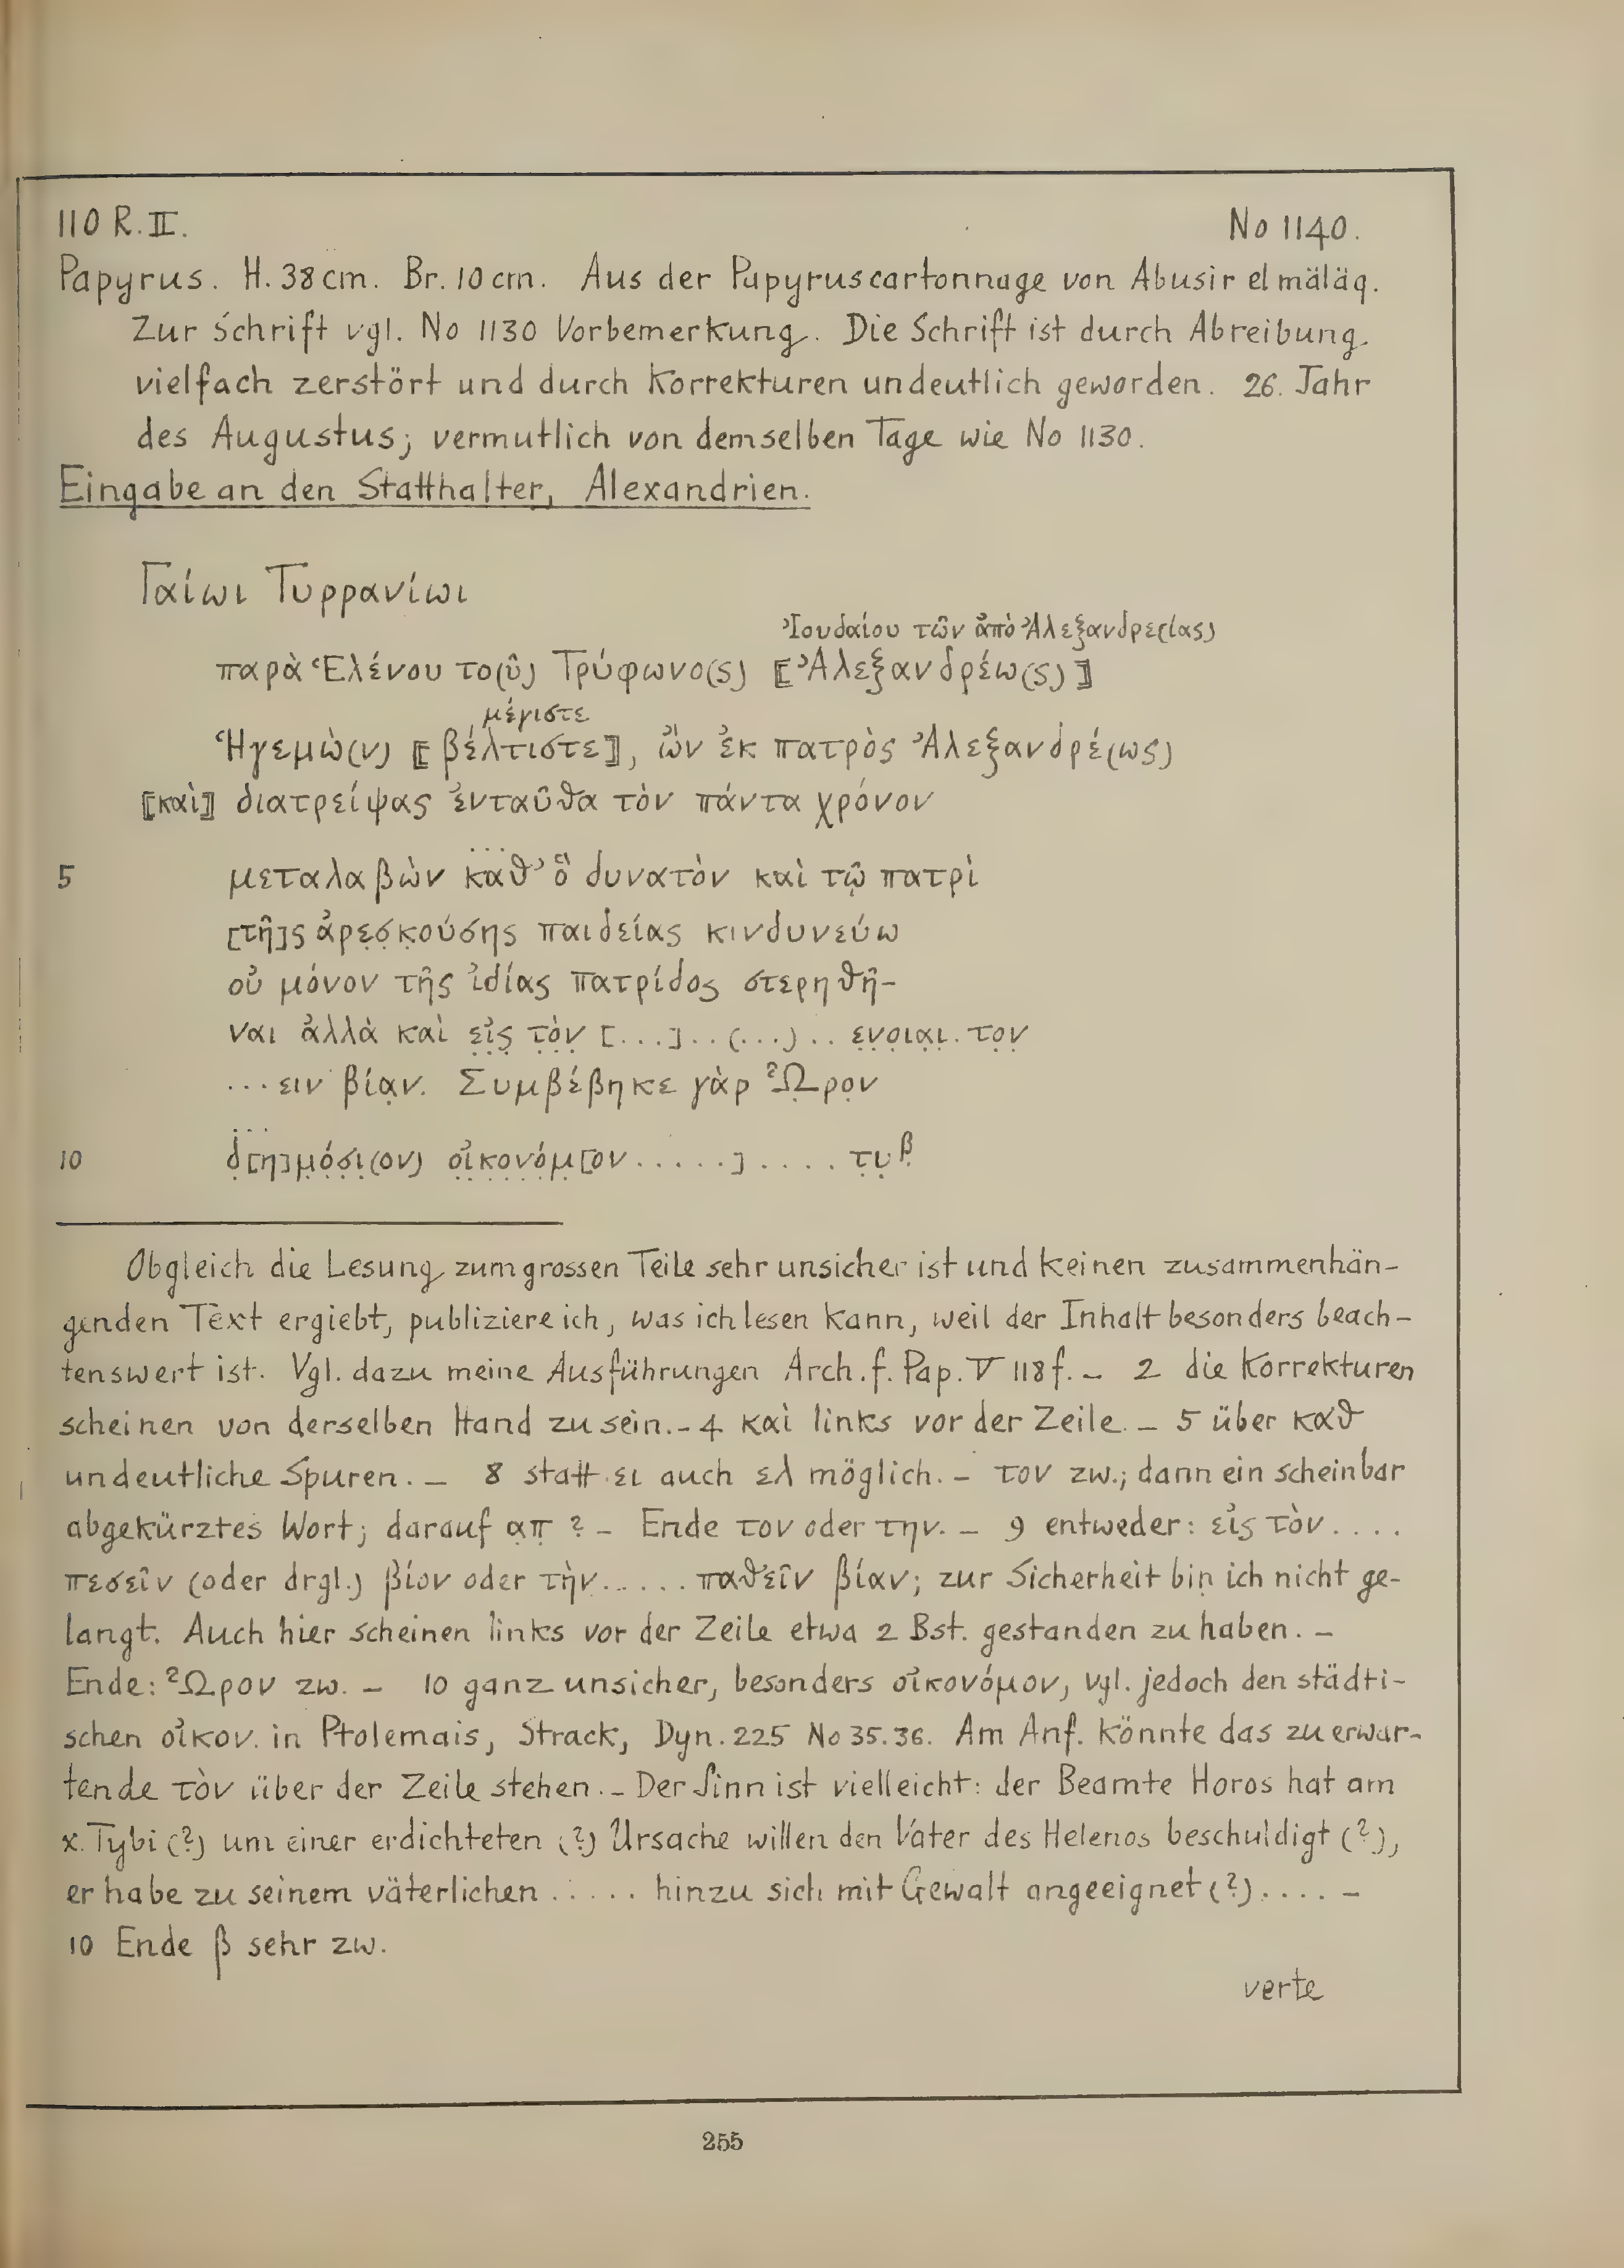 110 R. II. No 1140.
Papyrus. H. 38 cm. Br. 10 cm. Aus der Papyruscartonnage von Abusir el mäläq.
Zur Schrift vgl. No 1130 Vorbemerkung. Die Schrift ist durch Abreibung
vielfach zerstört und durch Korrekturen undeutlich geworden. 26. Jahr
des Augustus; vermutlich von demselben Tage wie No 1130.
Eingabe an den Statthalter, Alexandrien.
Γαίωι Τυρρανίωι
Ἰουδαίου τῶν ἀπὸ Ἀλεξανδρε(ίας)
παρὰ Ἑλένου το(ῦ) Τρύφωνο(ς) ⟦Ἀλεξανδρέω(ς)⟧
μέγιστε
Ἡγεμὼ(ν) ⟦βέλτιστε⟧, ὢν ἐκ πατρὸς Ἀλεξανδρέ(ως)
⟦καὶ⟧ διατρείψας ἐνταῦθα τὸν πάντα χρόνον
...
5 μεταλαβὼν καθ’ ὃ δυνατὸν καὶ τῷ πατρὶ
[τῆ]ς ἀρε̣σ̣κ̣ούσης παιδείας κινδυνεύω
οὐ μόνον τῆς ἰδίας πατρίδος στερηθῆ-
ναι ἀλλὰ καὶ ε̣ἰ̣ς̣ τ̣ὸ̣ν̣ [...]..(...).. ε̣ν̣ο̣ι̣α̣ι̣. τ̣ο̣ν̣
...ειν βία̣ν. Συμβέβηκε γὰρ Ὧ̣ρο̣ν
...
10 δ̣[η]μ̣ό̣σ̣ι̣(ον) ο̣ἰ̣κ̣ο̣ν̣ό̣μ̣[ον .....] .... τ̣υ̣β̣
Obgleich die Lesung zum grossen Teile sehr unsicher ist und keinen zusammenhän-
genden Text ergiebt, publiziere ich, was ich lesen kann, weil der Inhalt besonders beach-
tenswert ist. Vgl. dazu meine Ausführungen Arch. f. Pap. V 118 f. – 2 die Korrekturen
scheinen von derselben Hand zu sein. – 4 καὶ links vor der Zeile. – 5 über καθ
undeutliche Spuren. – 8 statt ει auch ελ möglich. – τον zw.; dann ein scheinbar
abgekürztes Wort; darauf α̣π̣ ? – Ende τον oder την. – 9 entweder: εἰς τὸν ....
πεσεῖν (oder drgl.) βίον oder τὴν ..... παθεῖν βίαν; zur Sicherheit bin ich nicht ge-
langt. Auch hier scheinen links vor der Zeile etwa 2 Bst. gestanden zu haben. –
Ende: Ὧρον zw. – 10 ganz unsicher, besonders οἰκονόμον, vgl. jedoch den städti-
schen οἰκον. in Ptolemais, Strack, Dyn. 225 No 35. 36. Am Anf. könnte das zu erwar-
tende τὸν über der Zeile stehen. – Der Sinn ist vielleicht: der Beamte Horos hat am
x. Tybi (?) um einer erdichteten (?) Ursache willen den Vater des Helenos beschuldigt (?),
er habe zu seinem väterlichen ..... hinzu sich mit Gewalt angeeignet (?) .... –
10 Ende β sehr zw.
verte
255